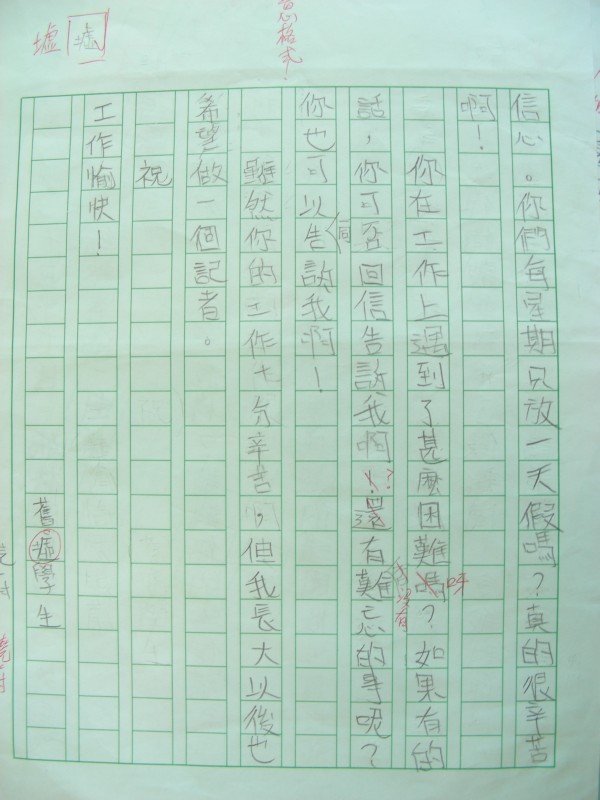 信心。你們每星期只放一天假嗎？真的很辛苦
啊！
你在工作上遇到了甚麼困難嗎？如果有的
呀
話，你可否回信告訴我啊！？還有難忘的事呢？
沒有
你也可以告訴我啊！
同
雖然你的工作十分辛苦，但我長大以後也
希望做一個記者。
祝
工作愉快！
舊墟學生
墟
墟
格式！